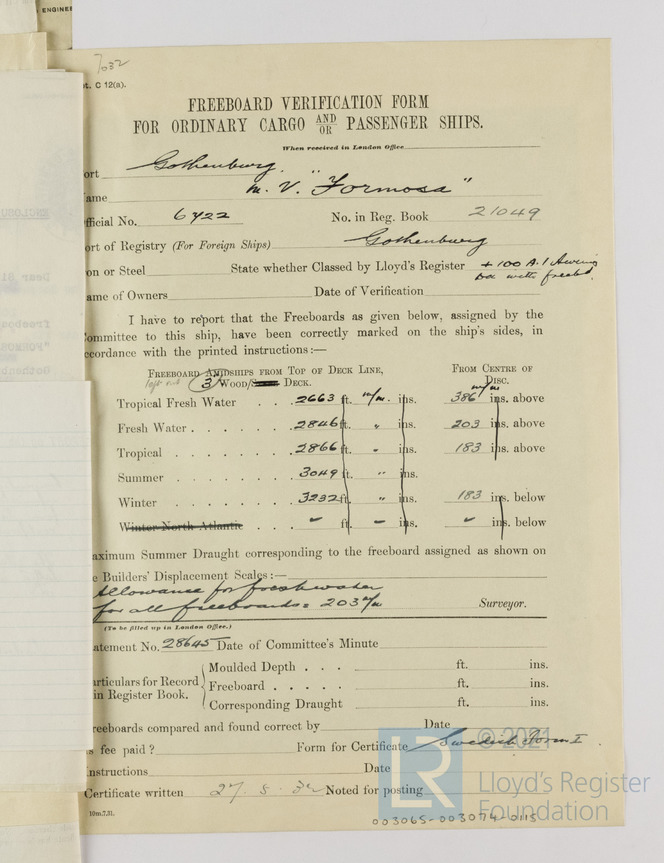 ENGINEE
7032
t. C 12(a).
FREEBOARD VERIFICATION FORM
FOR ORDINARY CARGO AND/OR PASSENGER SHIPS.
When received in London Office
ort Gothenburg.
ame m. V. "Formosa"
fficial No. 6722 No. in Reg. Book 21049
ort of Registry (For Foreign Ships) Gothenburg
on or Steel State whether Classed by Lloyd's Register + 100 A.1 Awning
with freebd.
ame of Owners Date of Verification
I have to report that the Freeboards as given below, assigned by the
ommittee to this ship, have been correctly marked on the ship's sides, in
ccordance with the printed instructions:—
Freeboard Amidships from Top of Deck Line, From Centre of
3 Wood/ Deck. Disc.
m/m
Tropical Fresh Water . . . 2663 ft. m/m ins. 386 ins. above
Fresh Water . . . . . . 2846 ft. " ins. 203 ins. above
Tropical . . . . . . . 2866 ft. " ins. 183 ins. above
Summer . . . . . . . 3049 ft. " ins.
Winter . . . . . . . 3232 ft. " ins. 183 ins. below
Winter North Atlantic . . . ft. ins. ins. below
aximum Summer Draught corresponding to the freeboard assigned as shown on
e Builders' Displacement Scales:—
Allowance for freshwater
for all freeboards = 203 m/m Surveyor.
(To be filled up in London Office.)
atement No. 28645 Date of Committee's Minute
articulars for Record
in Register Book.
Moulded Depth . . . ft. ins.
Freeboard . . . . . ft. ins.
Corresponding Draught ft. ins.
reeboards compared and found correct by Date
s fee paid? Form for Certificate Swedish Form I
nstructions Date
Certificate written 27. 5. 32 Noted for posting
10m.7,31.
© 2021
LR
Lloyd's Register
Foundation
003065-003074-0115